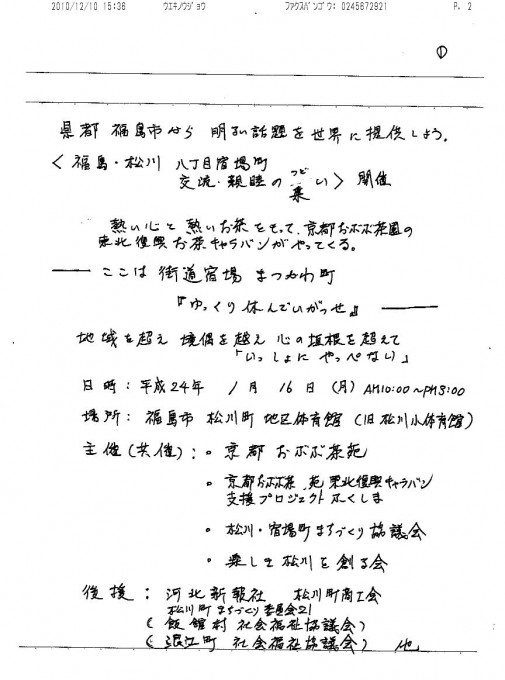 2010/12/10 15:36 ウエキノウジョウ ファクスバンゴウ: 0245672921 P. 2
①
県都 福島市から 明るい話題を世界に提供しよう。
〈福島・松川 八丁目宿場町
交流・親睦の集い〉 開催
つど
熱い心と熱いお茶をもって、京都おぶぶ茶園の
東北復興お茶キャラバンがやってくる。
―― ここは 街道宿場 まつかわ町
『ゆっくり休んでいがっせ』 ――
地域を超え 境偶を越え 心の垣根を超えて
「いっしょに やっぺない」
日時: 平成24年 1月 16日 (月) AM10:00~PM3:00
場所: 福島市 松川町 地区体育館 (旧松川小体育館)
主催(共催): 。京都 おぶぶ茶苑
。京都おぶぶ茶苑 東北復興キャラバン
支援プロジェクトふくしま
。松川・宿場町まちづくり協議会
。楽しま松川を創る会
後援: 河北新報社 松川町商工会
松川町まちづくり委員会21
(飯舘村 社会福祉協議会)
(浪江町 社会福祉協議会) 他